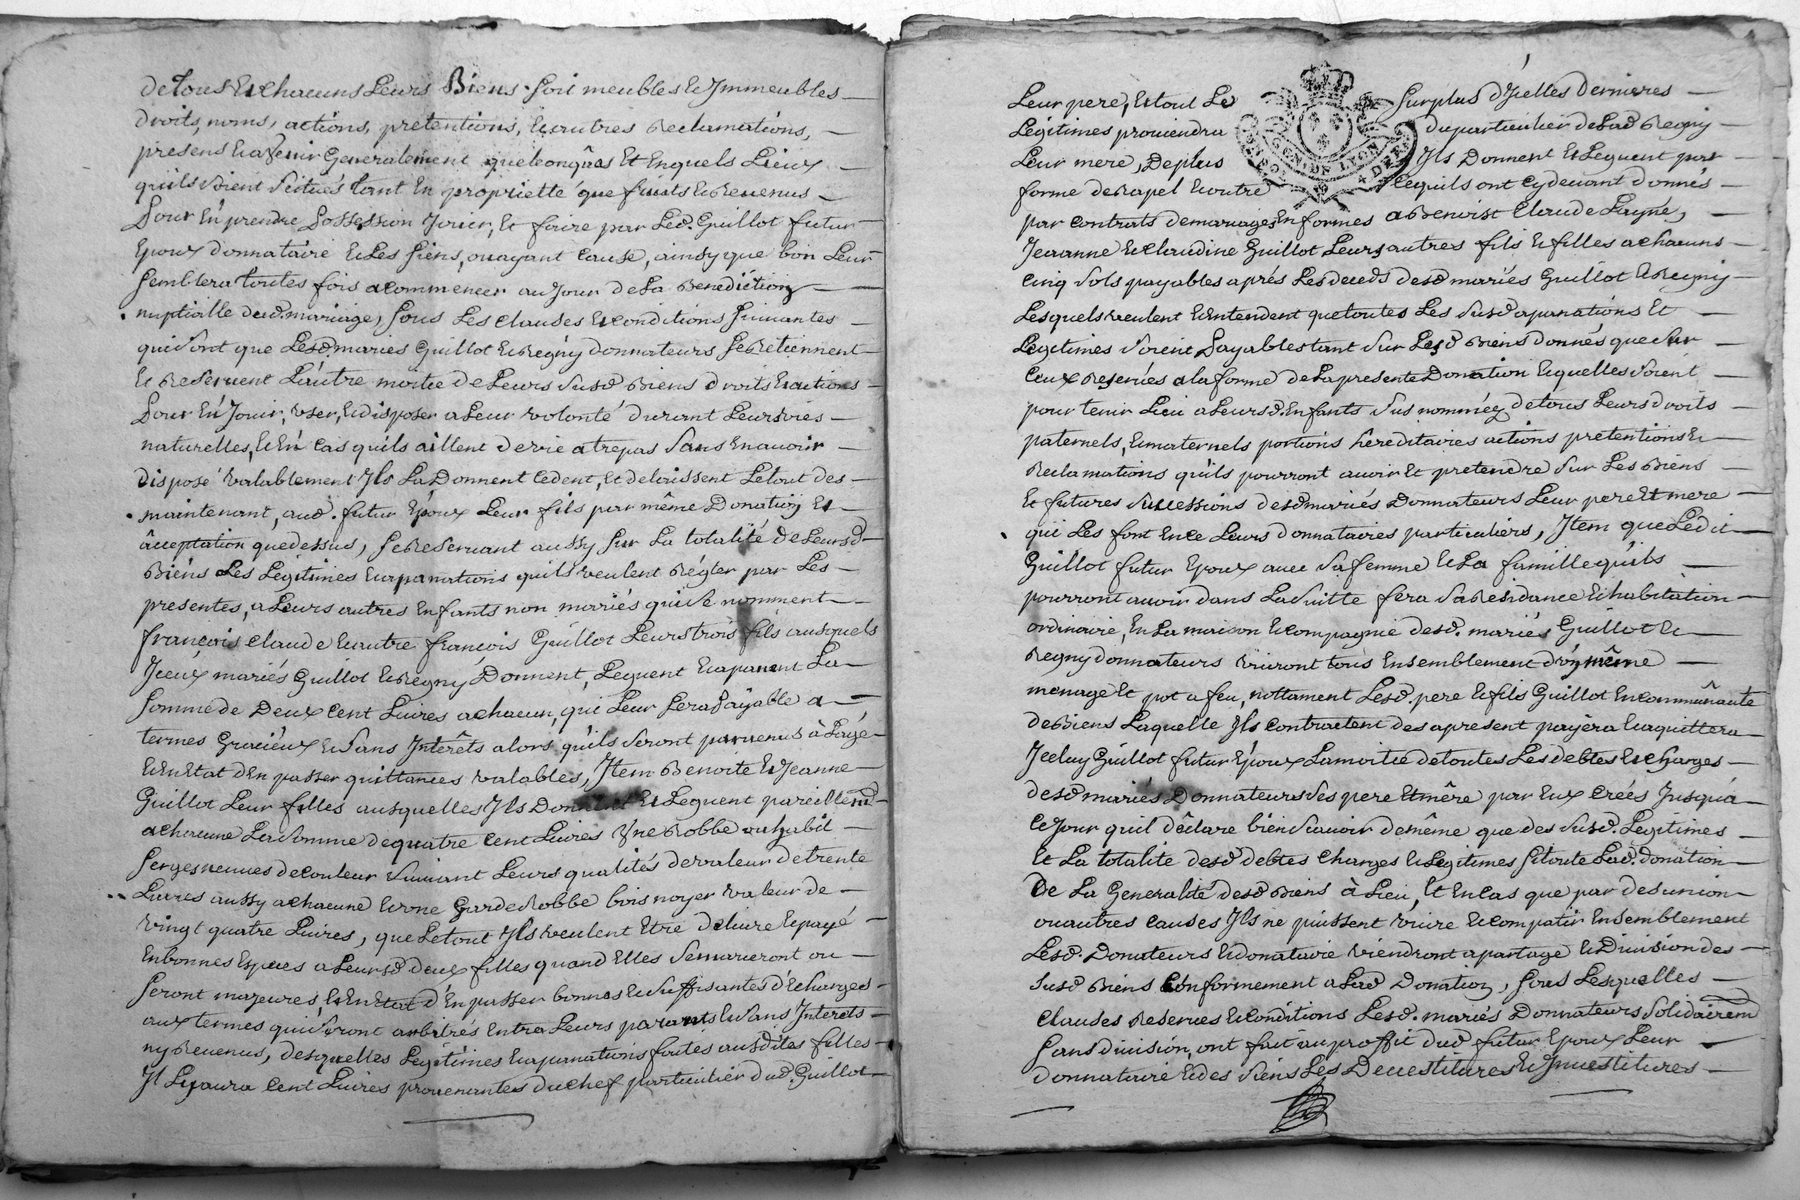 de tous et chacuns Leurs Biens soit meubles et Immeubles
droits, noms, actions, pretentions, et autres Reclamations,
presens et avenir Generalement quelconques Et Enquels Lieux
quils soient scitués tant En proprieté que fruits et Revenus
Pour En prendre Possession Jouir, Et faire par Led. Guillot futur
Epoux donnataire et Les siens, ou ayant cause, ainsy que bon Leur
semblera toutes fois a commencer au Jour de La Benediction
nuptialle dud. mariage, sous Les clauses et conditions suivantes
qui sont que Lesd. mariés Guillot et Regny donnateurs se Retiennent
Et Reservent L'autre moitié de Leurs susd. Biens droits et actions
Pour En Jouir, user, et disposer a Leur volonté durant Leurs vies
naturelles, et En cas quils aillent de vie a trepas sans en avoir
disposé valablement Ils La Donnent cedent, et delaissent Le tout des
maintenant, aud. futur Epoux Leur fils par même Donation Et
acceptation que dessus, se Reservant aussy sur La totalité de Leursd.
Biens Les Légitimes et apanations quils veulent Régler par Les
presentes, a Leurs autres Enfants non mariés qui se nomment
françois claude et autre françois Guillot Leurs trois fils ausquels
Iceux mariés Guillot et Regny Donnent, Leguent et apanent La
somme de Deux cent Livres a chacun, qui Leur sera Payable a
termes Gracieux et sans Intérêts alors quils seront parvenus à L'age
et en Etat d'En passer quittances valables, Item Benoite et Jeanne
Guillot Leur filles ausquelles Ils Donnent et Leguent pareillemt
a chacune La somme de quatre cent Livres Une Robbe ou habit
serges neuves de couleur suivant Leurs qualités de valeur de trente
Livres aussy a chacune et une Garde Robbe bois noyer valeur de
vingt quatre Livres, que Le tout Ils veulent Etre delivré et payé
En bonnes Especes a Leursd. deux filles quand Elles se marieront ou
seront majeures, et En Etat d'En passer bonnes et suffisantes décharges
aux termes qui seront arbitrés Entre Leurs parants et sans Interets
ny Revenus, desquelles Legitimes et apanations faites ausdites filles
Il y aura cent Livres provenantes du chef particulier dud. Guillot
Leur pere, et tout Le surplus d'Icelles dernieres
Légitimes proviendra du particulier de Lad. Regny
Leur mere, De plus Ils Donnent et Leguent par
forme de Rapel et outre ce quils ont cy devant donnés
par contrats de mariages En formes a Benoist Claude L'ayné,
Jeanne et Claudine Guillot Leurs autres fils et filles a chacuns
cinq sols payables aprés Les deceds desd. mariés Guillot et Regny
Lesquels veulent et Entendent que toutes Les susd. apanations Et
Legitimes soient Payables tant sur Lesd. Biens donnés que sur
ceux Reservés a la forme de La presente Donation et quelles soient
pour tenir Lieu a Leursd. Enfants sus nommés de tous Leurs droits
paternels, et maternels portions héreditaires actions pretentions et
Reclamations quils pourront avoir Et pretendre sur Les Biens
Et futures successions desd. mariés Donnateurs Leur pere Et mere
qui Les font En ce Leurs donnataires particuliers, Item que Ledit
Guillot futur Epoux avec sa femme et La famille quils
pourront avoir dans La suitte fera sa Residance et habitation
ordinaire, En La maison et compagnie desd. mariés Guillot et
Regny donnateurs vivront tous Ensemblement d'un même
menage Et pot a feu, nottament Lesd. pere et fils Guillot En communauté
de Biens Laquelle Ils contractent des apresent payera et aquittera
Iceluy Guillot futur Epoux La moitié de toutes Les debtes et charges
desd. mariés Donnateurs ses pere Et mére par Eux créés Jusqu'a
ce Jour quil déclare bien scavoir de même que des susd. Legitimes
Et La totalité desd. debtes charges et Legitimes si toute Lad. donation
De La Generalité desd. Biens à Lieu, Et En cas que par desunion
ou autres causes Ils ne puissent vivre et compatir Ensemblement
Lesd. Donateurs et donataire viendront a partage et Division des
susd. Biens conformement a Lad. Donation, sous Lesquelles
clauses Reserves et conditions Lesd. mariés Donnateurs solidairemt
sans division, ont fait au proffit dud. futur Epoux Leur
donnataire et des siens Les Devestitures et Investitures